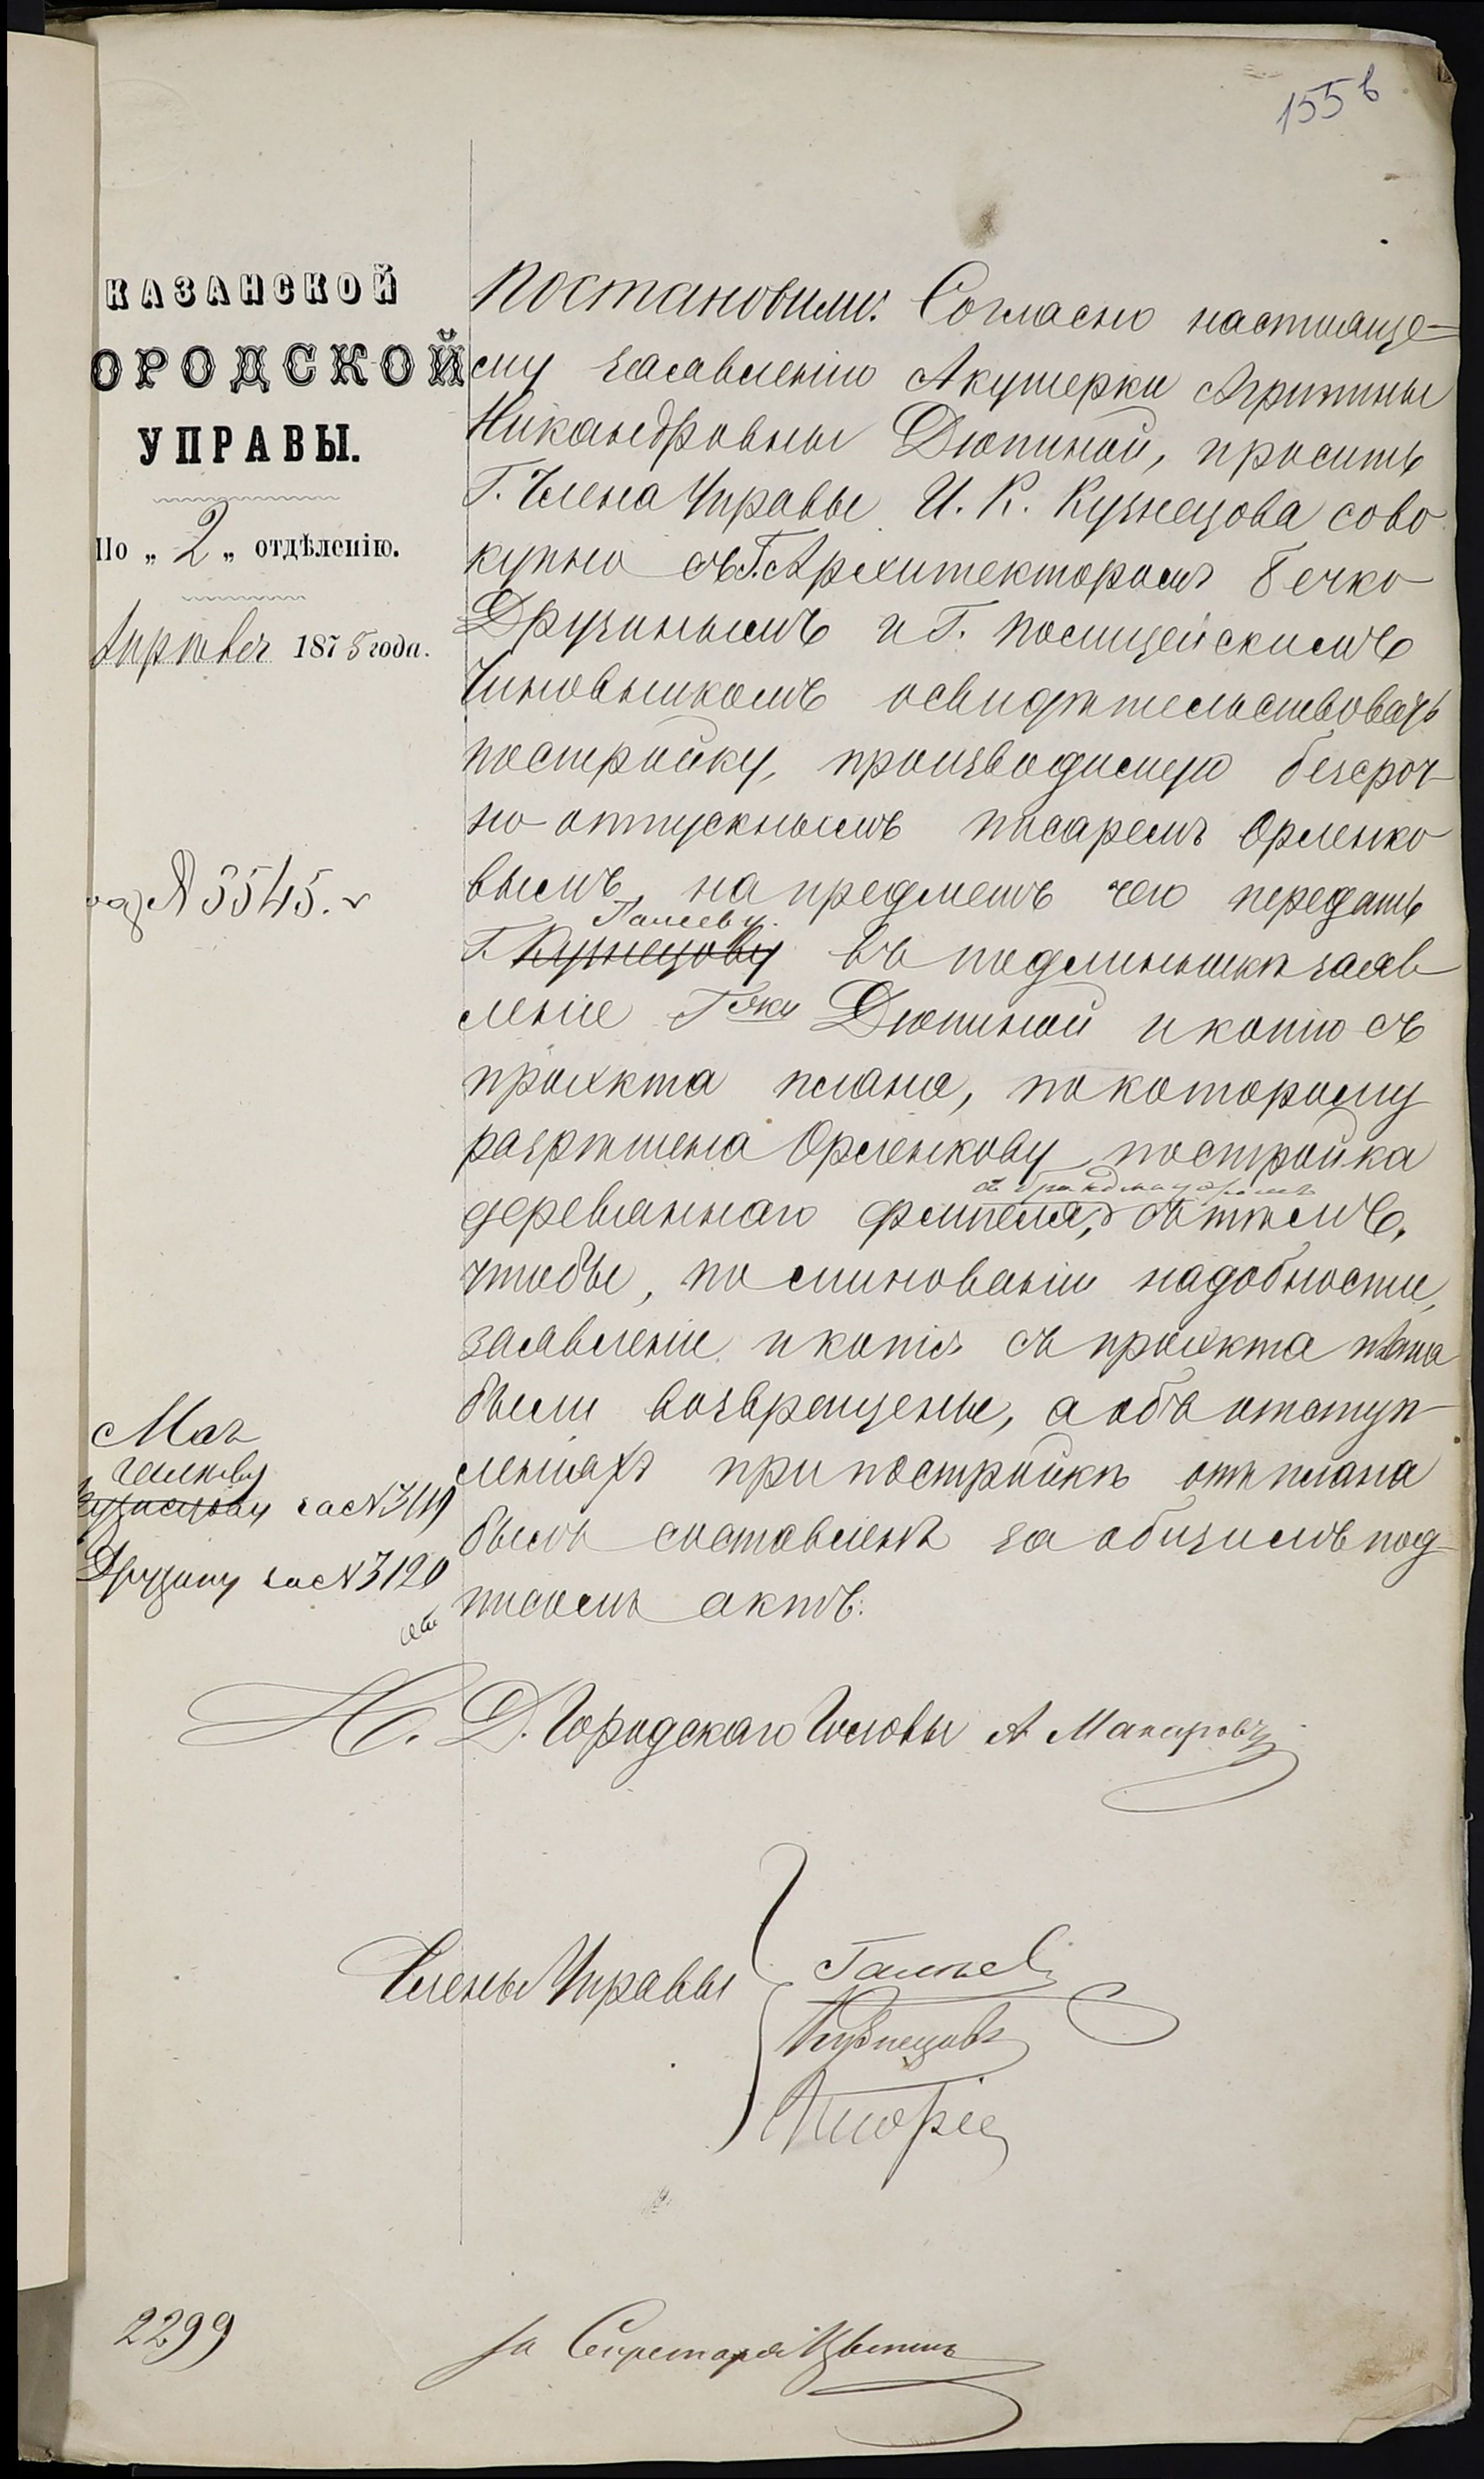 155 в
КАЗАНСКОЙ
ОРОДСКОЙ
УПРАВЫ.
По „ 2 „ отдѣленію.
1875 года.
№ 3545.
Постановили: Согласно настояще-
му заявленію Акушерки Агрипины
Никандровны Дюпиной, просить
Г. Члена Управы И. К. Кузнецова сово
купно съ Г. Архитекторомъ Бечко
Друзинымъ и Г. Полицейскимъ
Чиновникомъ освидѣтельствовать
постройку, производимую безсроч-
но-отпускнымъ писаремъ Орленко
вымъ, на предметъ чего передать
Галееву
Г. Кузнецову въ подлинникѣ заяв
леніе Г-жи Дюпиной и копію съ
проэкта плана, по которому
разрѣшена Орленкову постройка
съ брандмауэромъ
деревяннаго флигеля, съ тѣмъ,
чтобы, по минованіи надобности,
заявленіе и копія съ проэкта плана
были возвращены, а объ отступ-
леніяхъ при постройкѣ отъ плана
былъ составленъ за общимъ под-
писомъ актъ.
Мая
Галееву
Кузнецову за № 3119
Друзину за № 3120
И. Д. Городскаго Головы А Макаровъ
Члены Управы
Галеев
Кузнецовъ
2299
За Секретаря